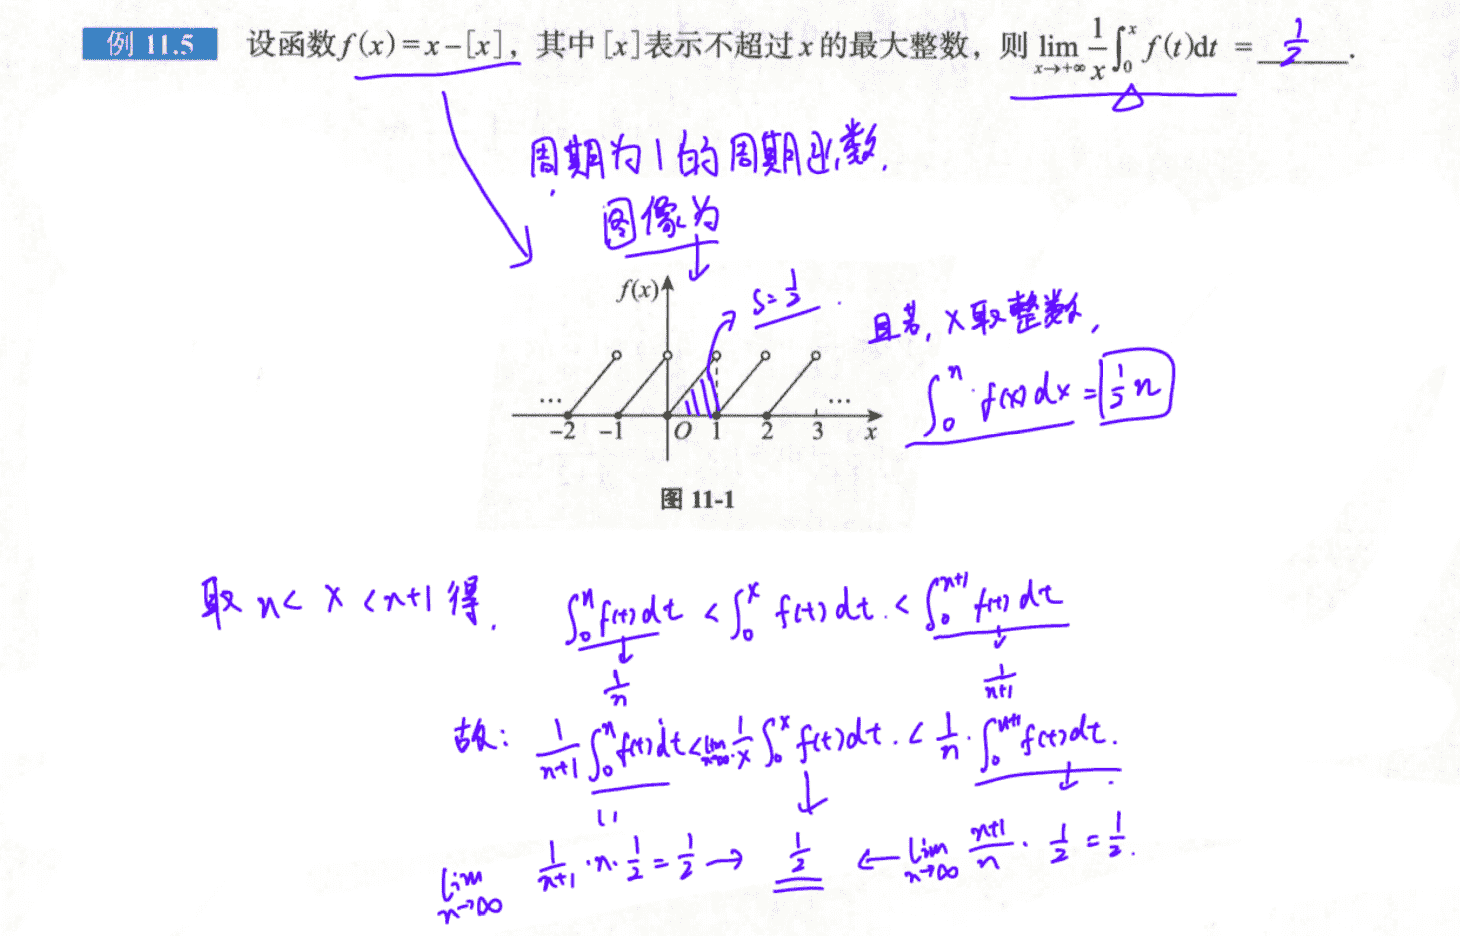 例 11.5 设函数f(x)=x-[x]，其中[x]表示不超过x的最大整数，则 lim_{x→+∞} \frac{1}{x}∫_0^x f(t)dt = \frac{1}{2}.
周期为1的周期函数.
图像为
f(x)
S=\frac{1}{2}
且若，x取整数，
∫_0^n f(x)dx = \frac{1}{2}n
... ...
-2 -1 O 1 2 3 x
图 11-1
取 n< x <n+1 得. ∫_0^n f(t)dt < ∫_0^x f(t)dt. < ∫_0^{n+1} f(t)dt
\frac{1}{n} \frac{1}{n+1}
故: \frac{1}{n+1}∫_0^n f(t)dt < lim_{x→∞} \frac{1}{x}∫_0^x f(t)dt. < \frac{1}{n}·∫_0^{n+1} f(t)dt.
lim_{n→∞} \frac{1}{n+1}·n·\frac{1}{2}=\frac{1}{2} → \frac{1}{2} ← lim_{n→∞} \frac{n+1}{n}·\frac{1}{2}=\frac{1}{2}.